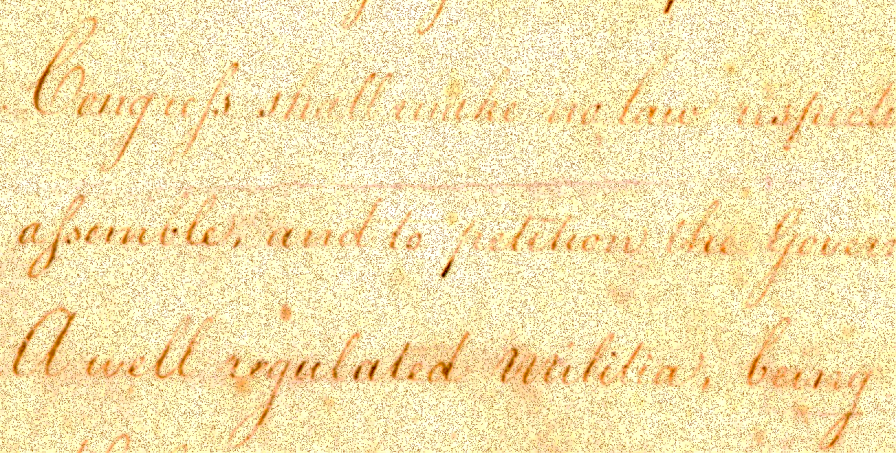 Congreſs shall make no law respect
aſsemble, and to petition the Govern
A well regulated Militia, being